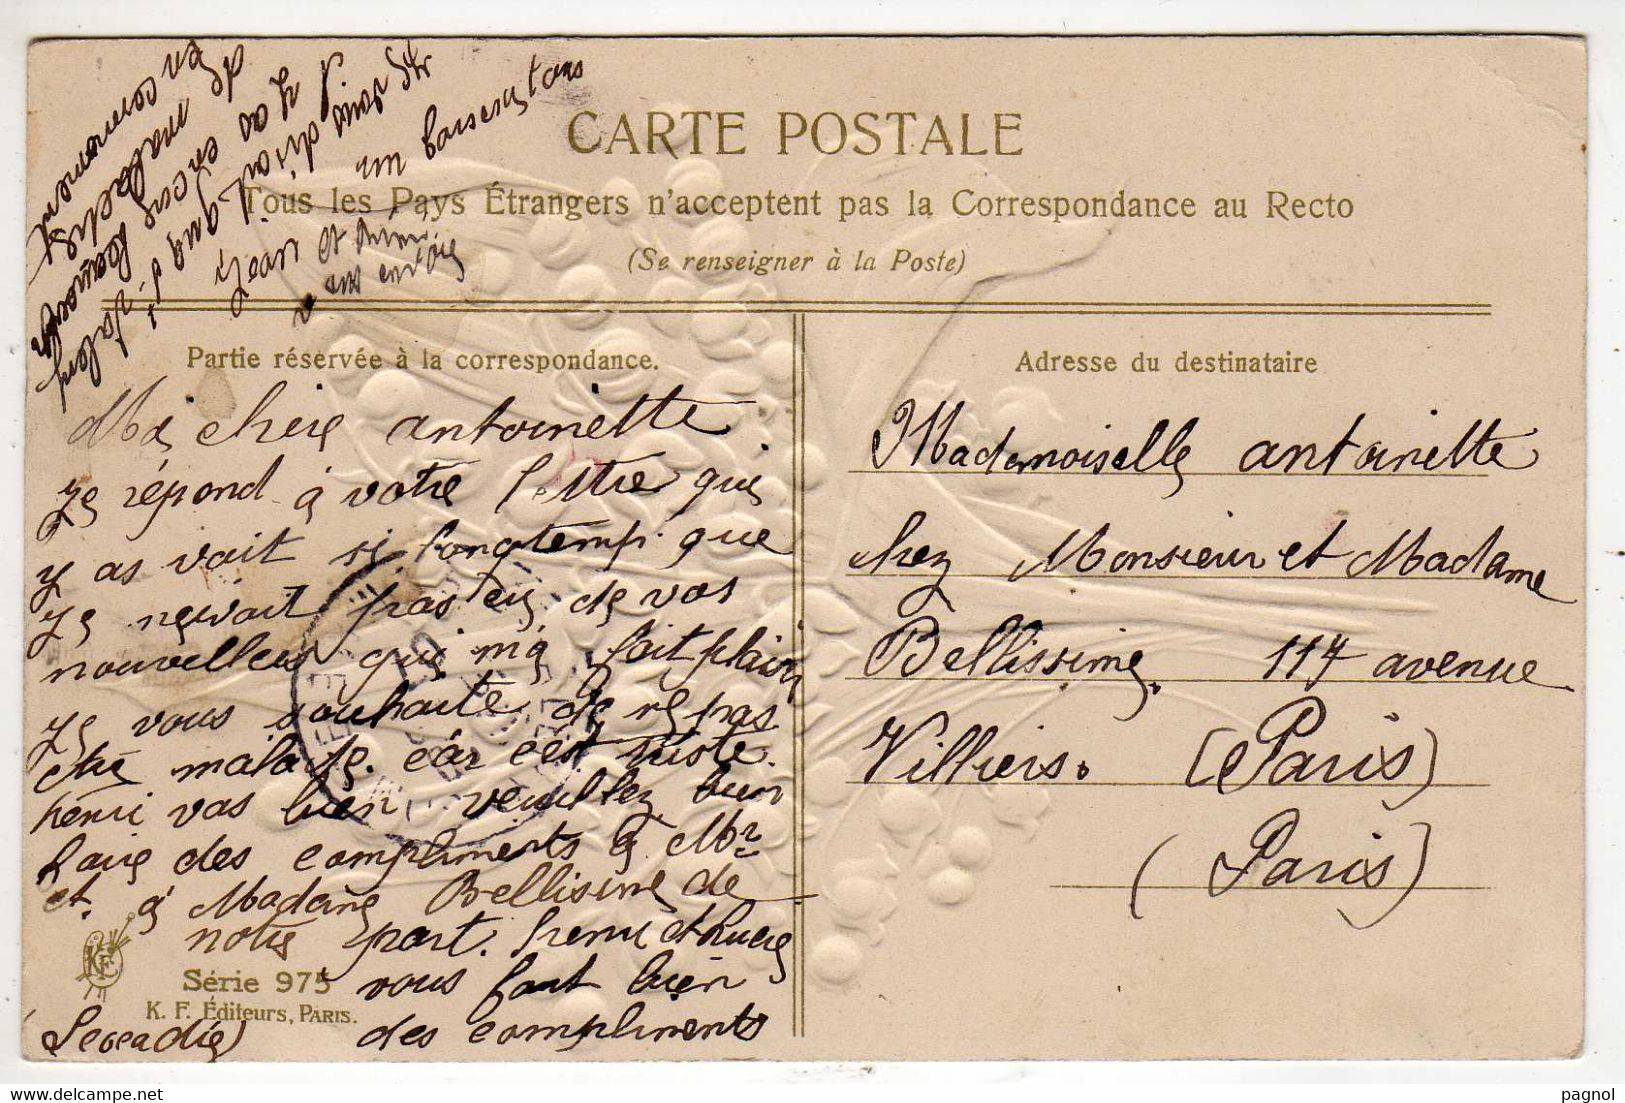 CARTE POSTALE
Tous les Pays Étrangers n'acceptent pas la Correspondance au Recto
(Se renseigner à la Poste)
Partie réservée à la correspondance.
Adresse du destinataire
Ma chère antoinette
je répond à votre lettre qui
y as vait si longtemp que
je reçivait pas eu de vos
nouvelles qui m'a fait plaisir
je vous souhaite de ne pas
etre malade. car c'est triste.
henri vas bien, veuillez bien
faire des compliments à Mr
et à Madame Bellisime de
notre part. henri et Lucie
vous font bien
des compliments
(Leocadie)
un baiser
Jean et
vous envoie
Mademoiselle antoinette
chez Monsieur et Madame
Bellissime. 117 avenue
Villiers. (Paris)
(Paris)
KF
Série 975
K. F. Éditeurs, PARIS.
pagnol